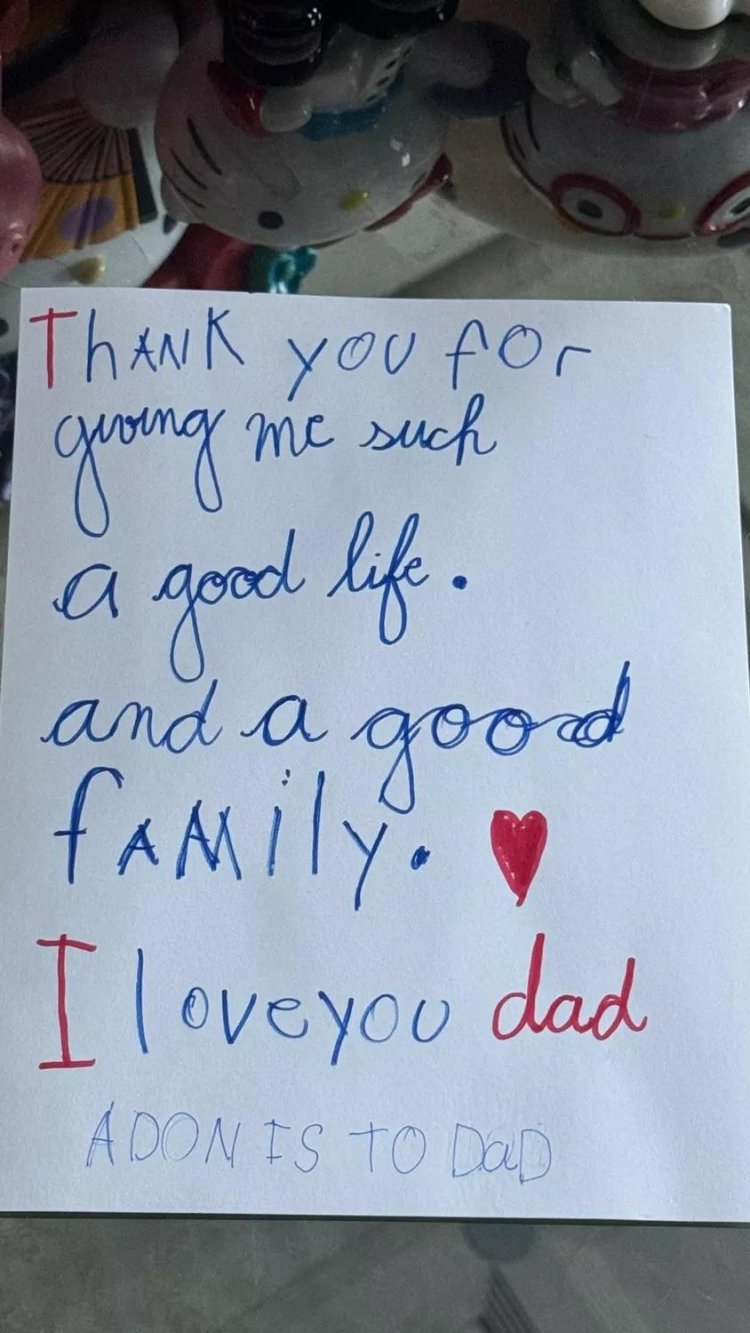 ThANK you for
giving me such
a good life.
and a good
fAMily.
I love you dad
ADONIS TO DaD